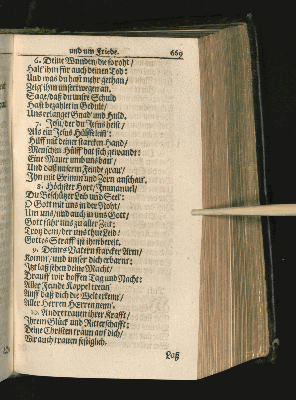 und um Friede. 669
6. Deine Wunden / die so roht /
Halt ihm für auch deinen Tod:
Und was du hast mehr gethan /
Zeig ihm unsertwegen an.
Sage / daß du unsre Schuld
Hast bezahlet in Gedult /
Uns erlanget Gnad und Huld.
7. Jesu / der du Jesus heist /
Als ein Jesus Hülffe leist:
Hilff mit deiner starcken Hand /
Menschen Hülff hat sich gewandt:
Eine Maur umb uns bau /
Und daß unserm Feinde grau /
Ihn mit Grimm und Zorn anschau.
8. Höchster Hort / Immanuel /
Du Beschützer Leib und Seel:
O Gott mit uns in der Noht /
Um uns / und auch in uns Gott /
Gott für uns zu aller Zeit:
Trotz dem / der uns thue Leid:
Gottes Straff ist ihm bereit.
9. Deines Vatern starcker Arm /
Komm / und unser dich erbarm:
Vor laß sehen deine Macht /
Drauff wir hoffen Tag und Nacht:
Aller Feinde Koppel trenn
Auff daß dich die Welt erkenn /
Aller Herren Herren nenn.
10. Andre trauen ihrer Krafft /
Ihrem Glück und Ritterschafft:
Deine Christen traun auf dich /
Wir auch trauen festiglich.
Laß